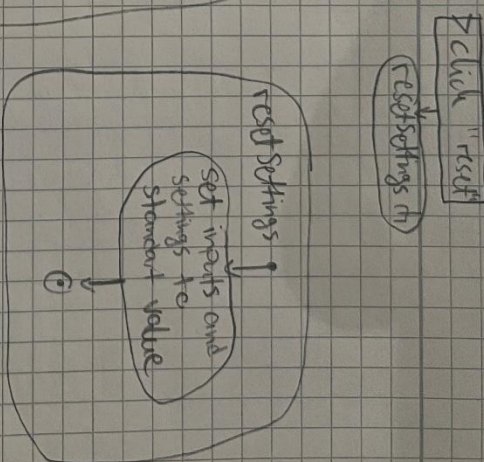 click "reset"
resetSettings rh
resetSettings
set inputs and
settings to
standart value